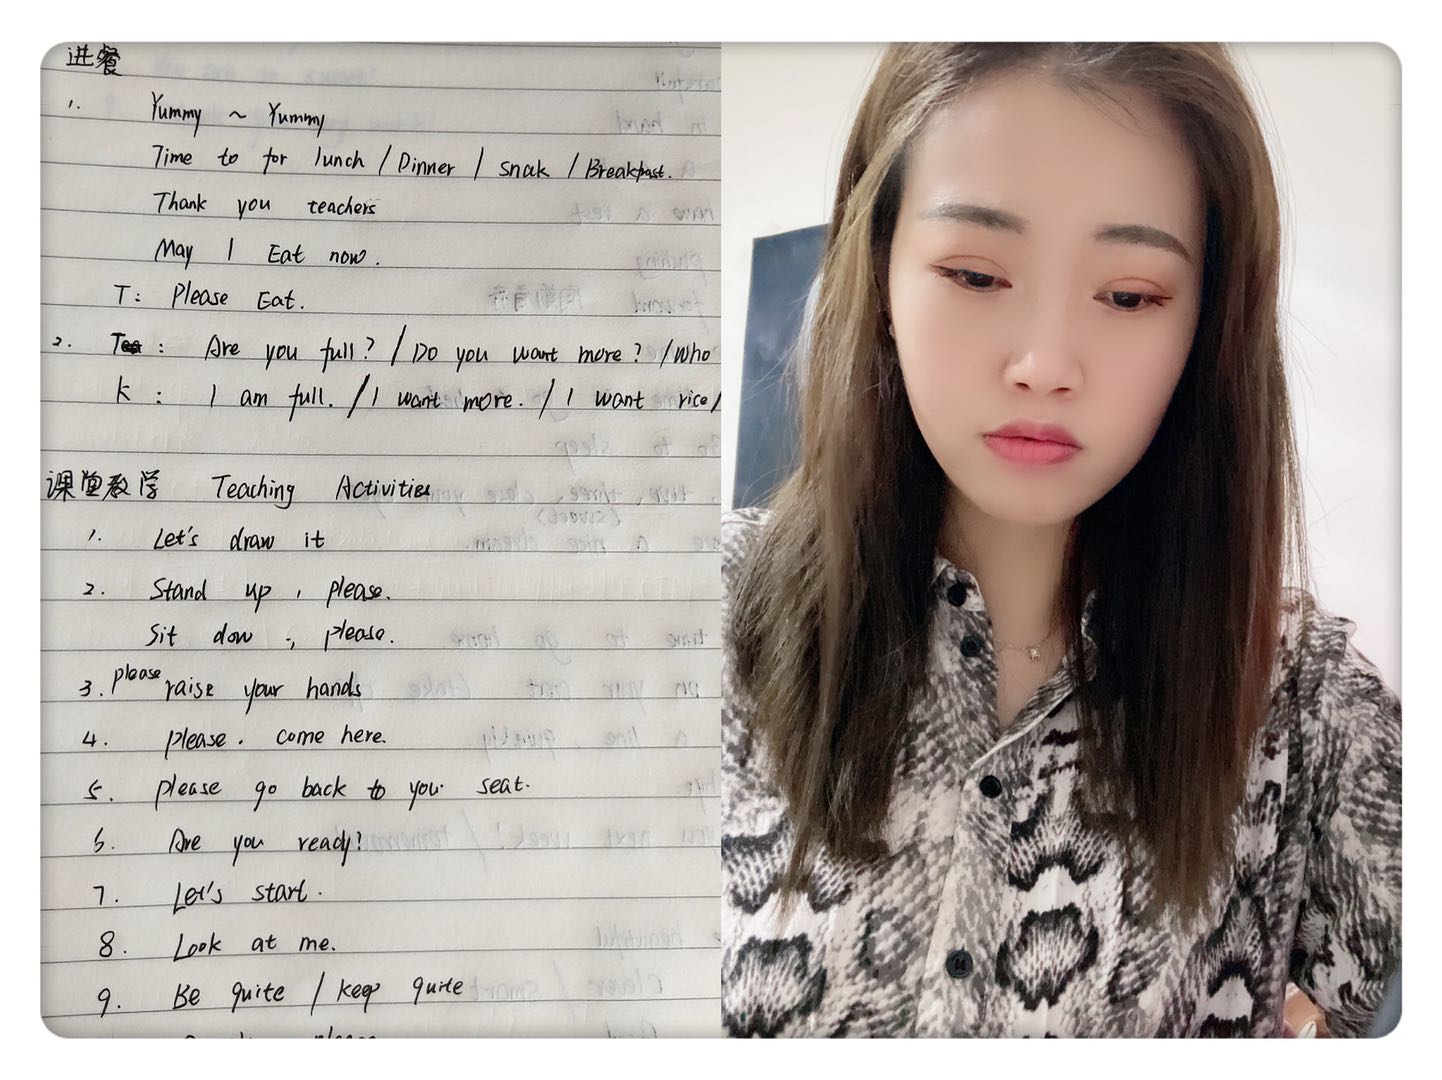 进餐
1. Yummy ~ Yummy
Time to for lunch / Dinner / snak / Breakfast.
Thank you teachers
May I Eat now.
T: Please Eat.
2. : Are you full? / Do you want more? / Who
K : I am full. / I want more. / I want rice /
课堂教学 Teaching Activities
1. Let's draw it
2. Stand up , please.
Sit dow , please.
3. please raise your hands
4. please. come here.
5. please go back to you seat.
6. Are you ready?
7. Let's start.
8. Look at me.
9. Be quite / keep quite
please